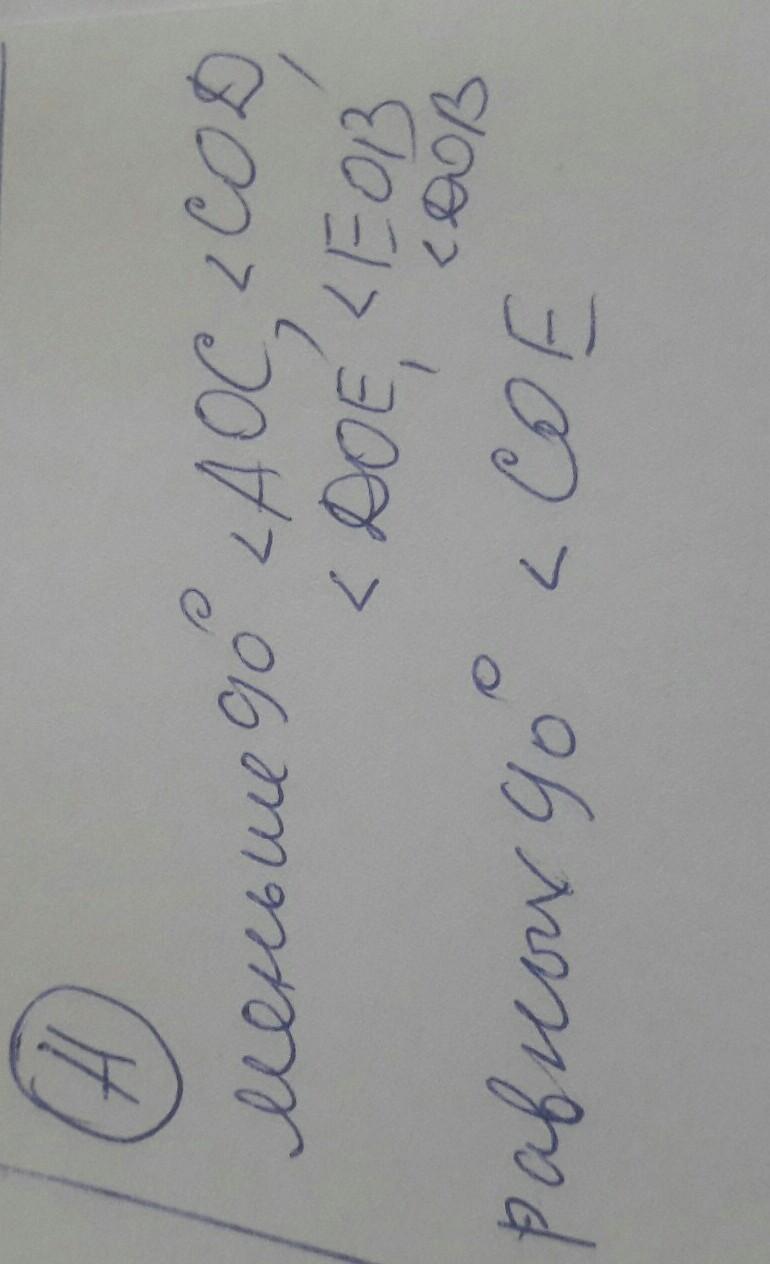 4
меньше 90° <AOC, <COD,
<DOE, <EOB
<DOB
равных 90° <COE